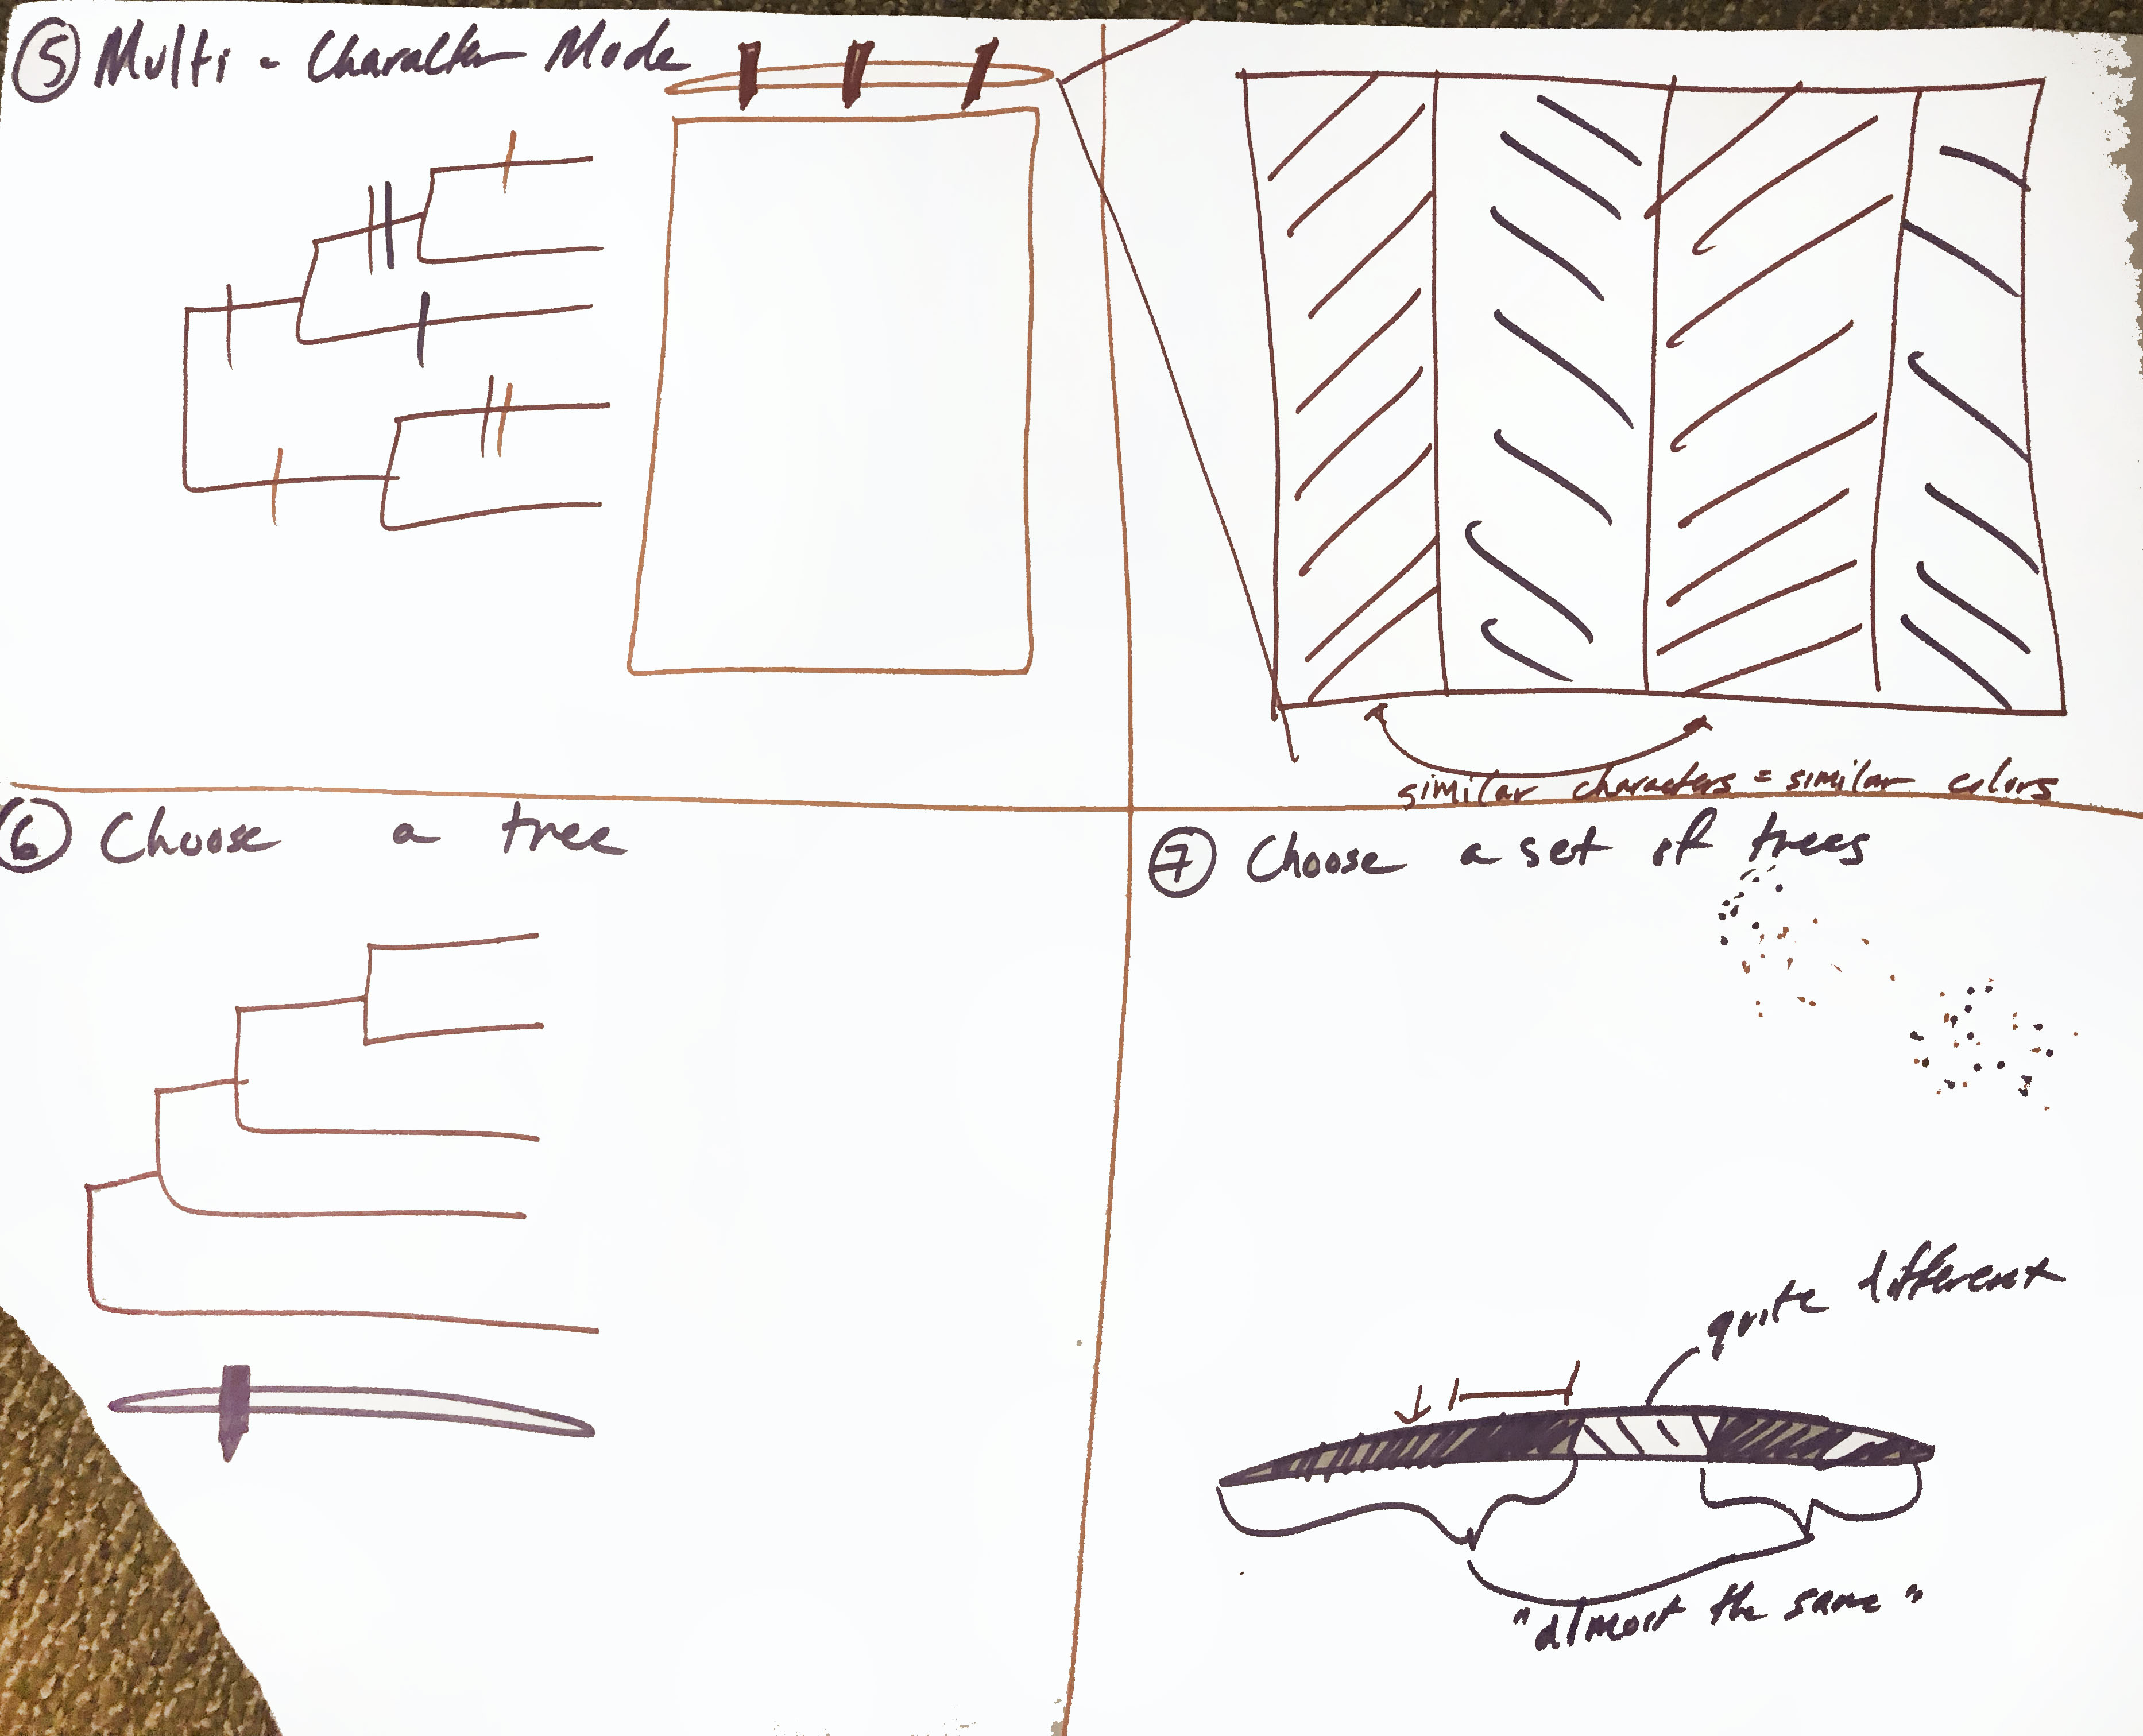 5 Multi - Character Mode
similar characters = similar colors
6 Choose a tree
7 Choose a set of trees
quite different
"almost the same"